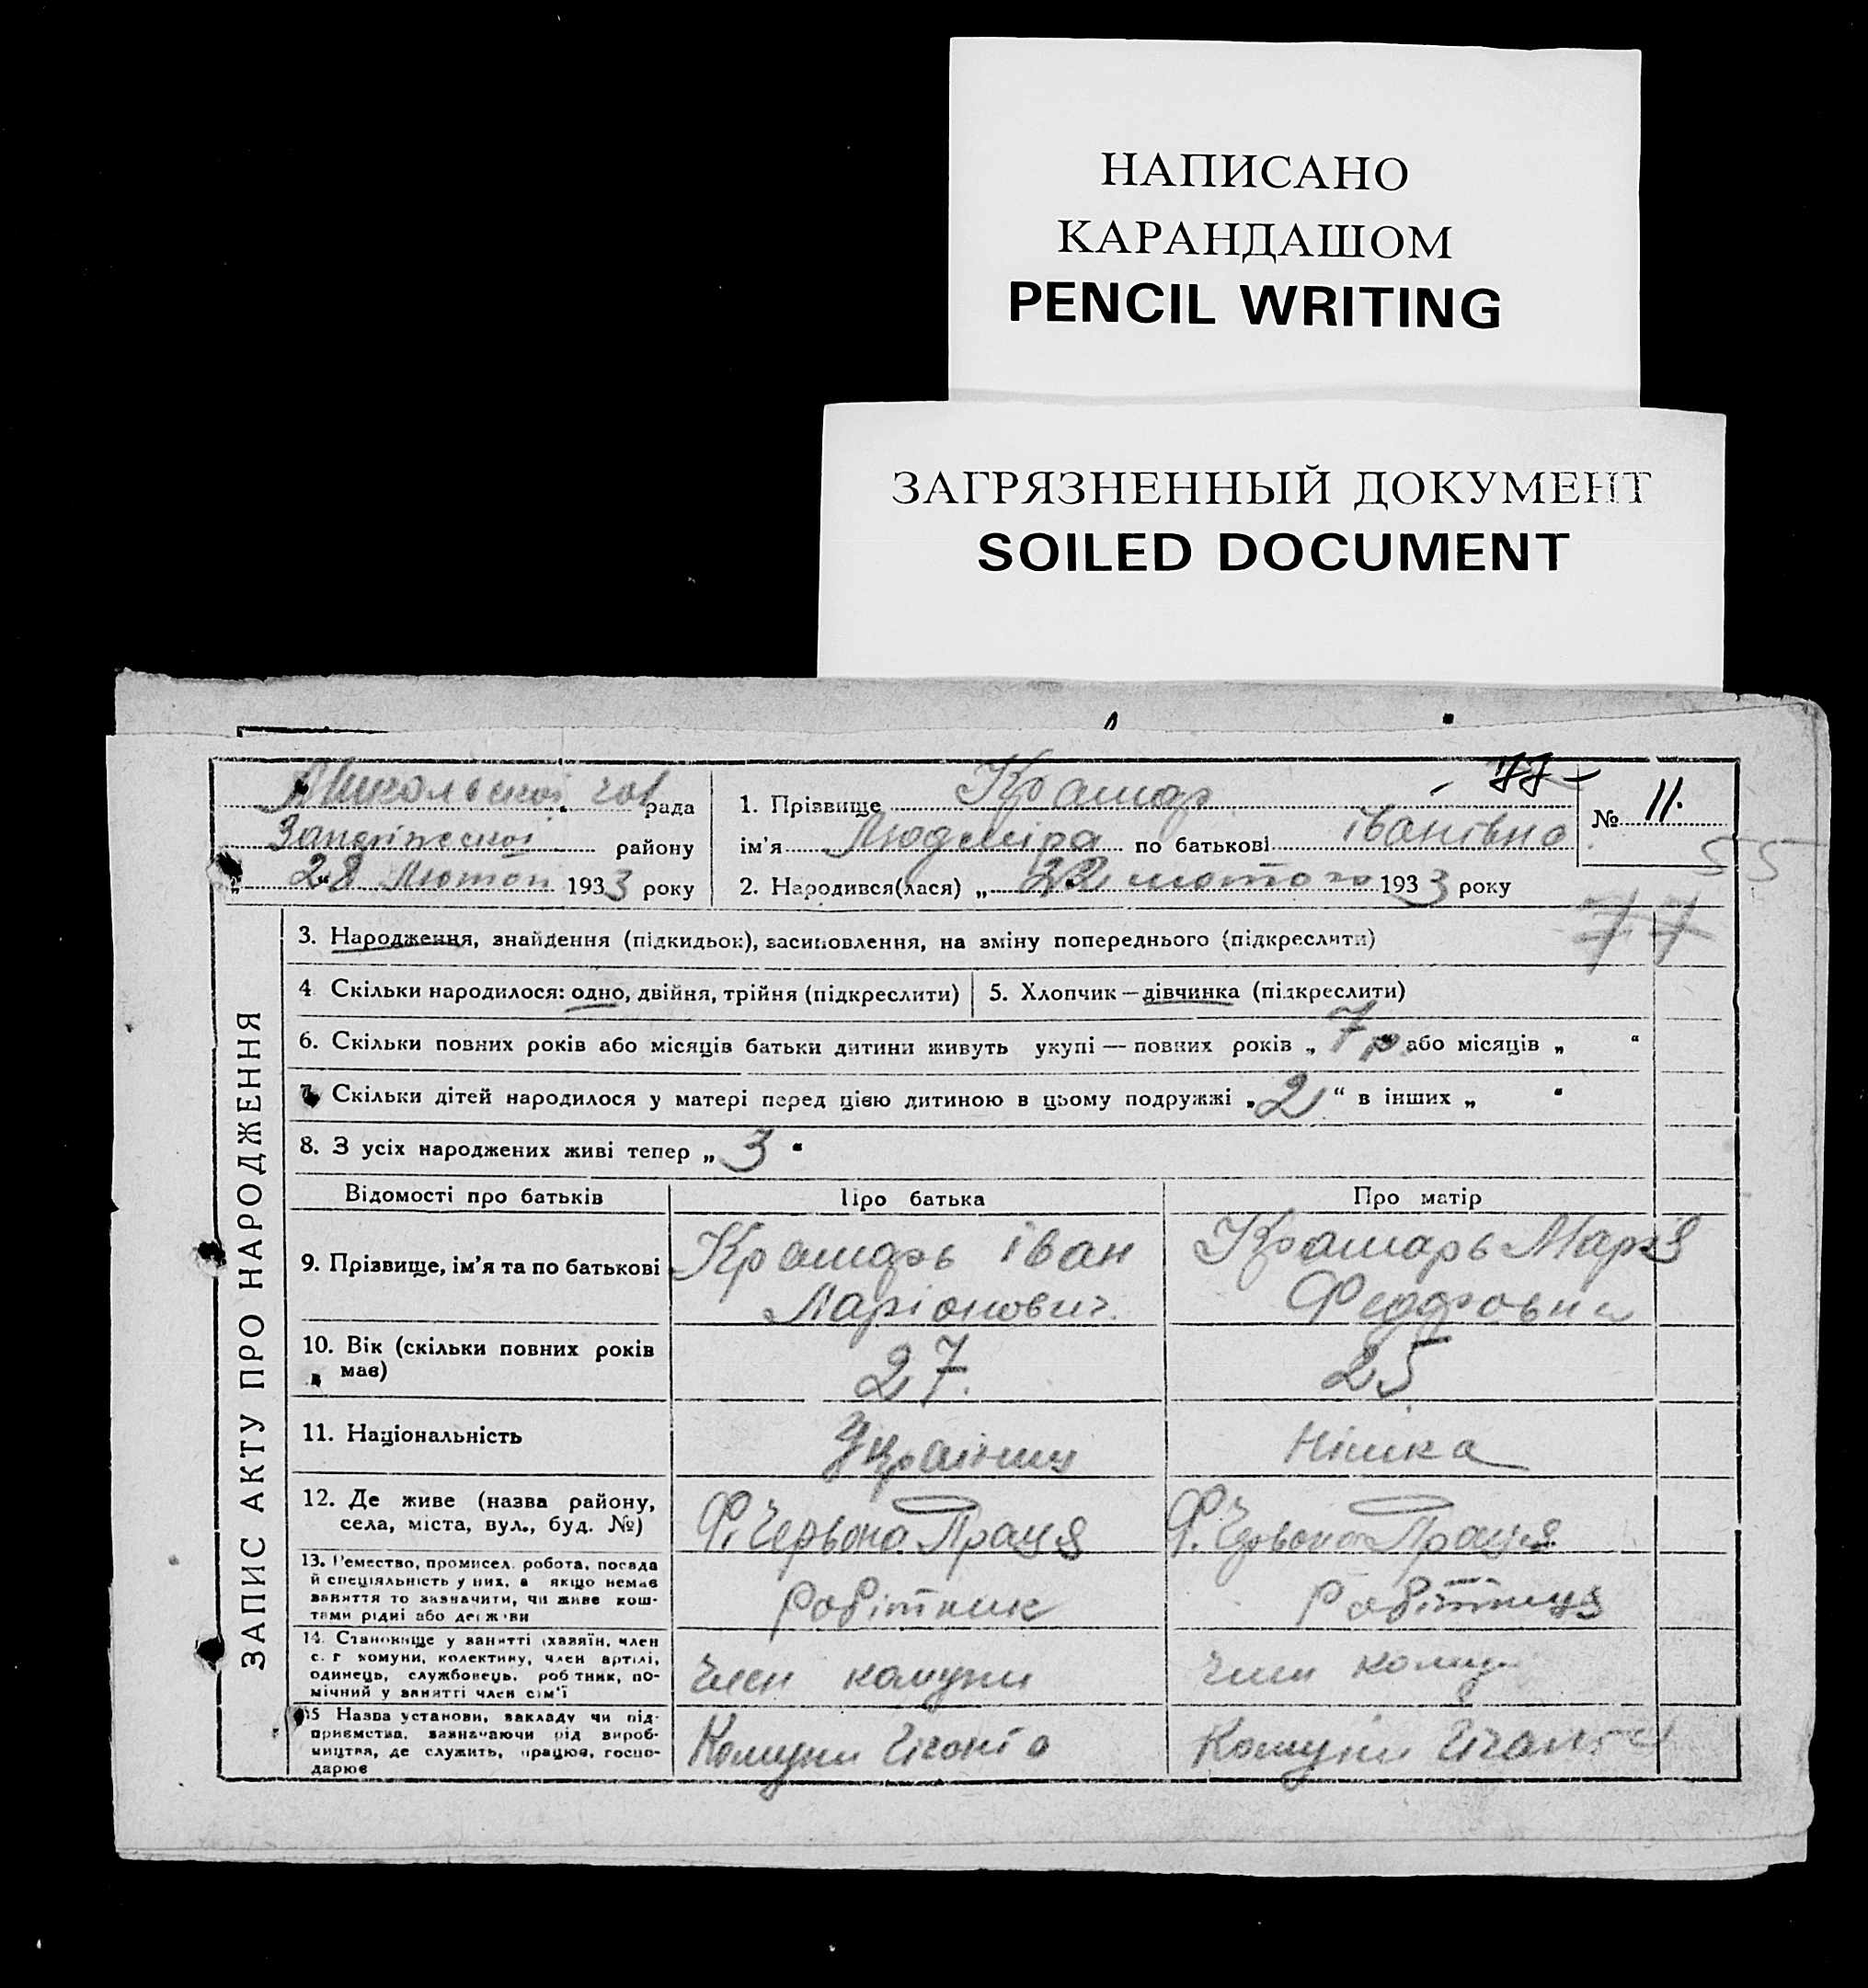 НАПИСАНО
КАРАНДАШОМ
PENCIL WRITING
ЗАГРЯЗНЕННЫЙ ДОКУМЕНТ
SOILED DOCUMENT
ЗАПИС АКТУ ПРО НАРОДЖЕННЯ
Микольської рада
району
28 Лютого 1933 року
1. Прізвище Крамар 77
ім'я Людміра по батькові Іванівна
2. Народився(лася) „ 22 лютого 1933 року
№ 11.
55
77
3. Народження, знайдення (підкидьок), засиновлення, на зміну попереднього (підкреслити)
4 Скільки народилося: одно, двійня, трійня (підкреслити) 5. Хлопчик — дівчинка (підкреслити)
6. Скільки повних років або місяців батьки дитини живуть укупі — повних років „ 7 р. або місяців „ “
7. Скільки дітей народилося у матері перед цією дитиною в цьому подружжі „ 2 “ в інших „ “
8. З усіх народжених живі тепер „ 3 “
Відомості про батьків Про батька Про матір
9. Прізвище, ім'я та по батькові Крамарь Іван Крамарь Марія
Ларіонович. Федровна
10. Вік (скільки повних років 27. 25
має)
11. Національність Українец Німка
12. Де живе (назва району, Ф. Червона Праця Ф. Червона Праця
села, міста, вул., буд. №)
13. Ремество, промисел, робота, посада
й спеціяльність у них, а якщо немає
заняття то зазначити, чи живе кош-
тами рідні або держави
робітник Робітниця
14. Становище у занятті (хазяїн, член
с. г комуни, колективу, член артілі,
одинець, службовець, робітник, по-
мічний у занятті член сім'ї
член комуни член комун
15 Назва установи, закладу чи під-
приємства, зазначаючи рід вироб-
ництва, де служить, працює, госпо-
дарює
Комуни Гіганта Комуни Гіганта